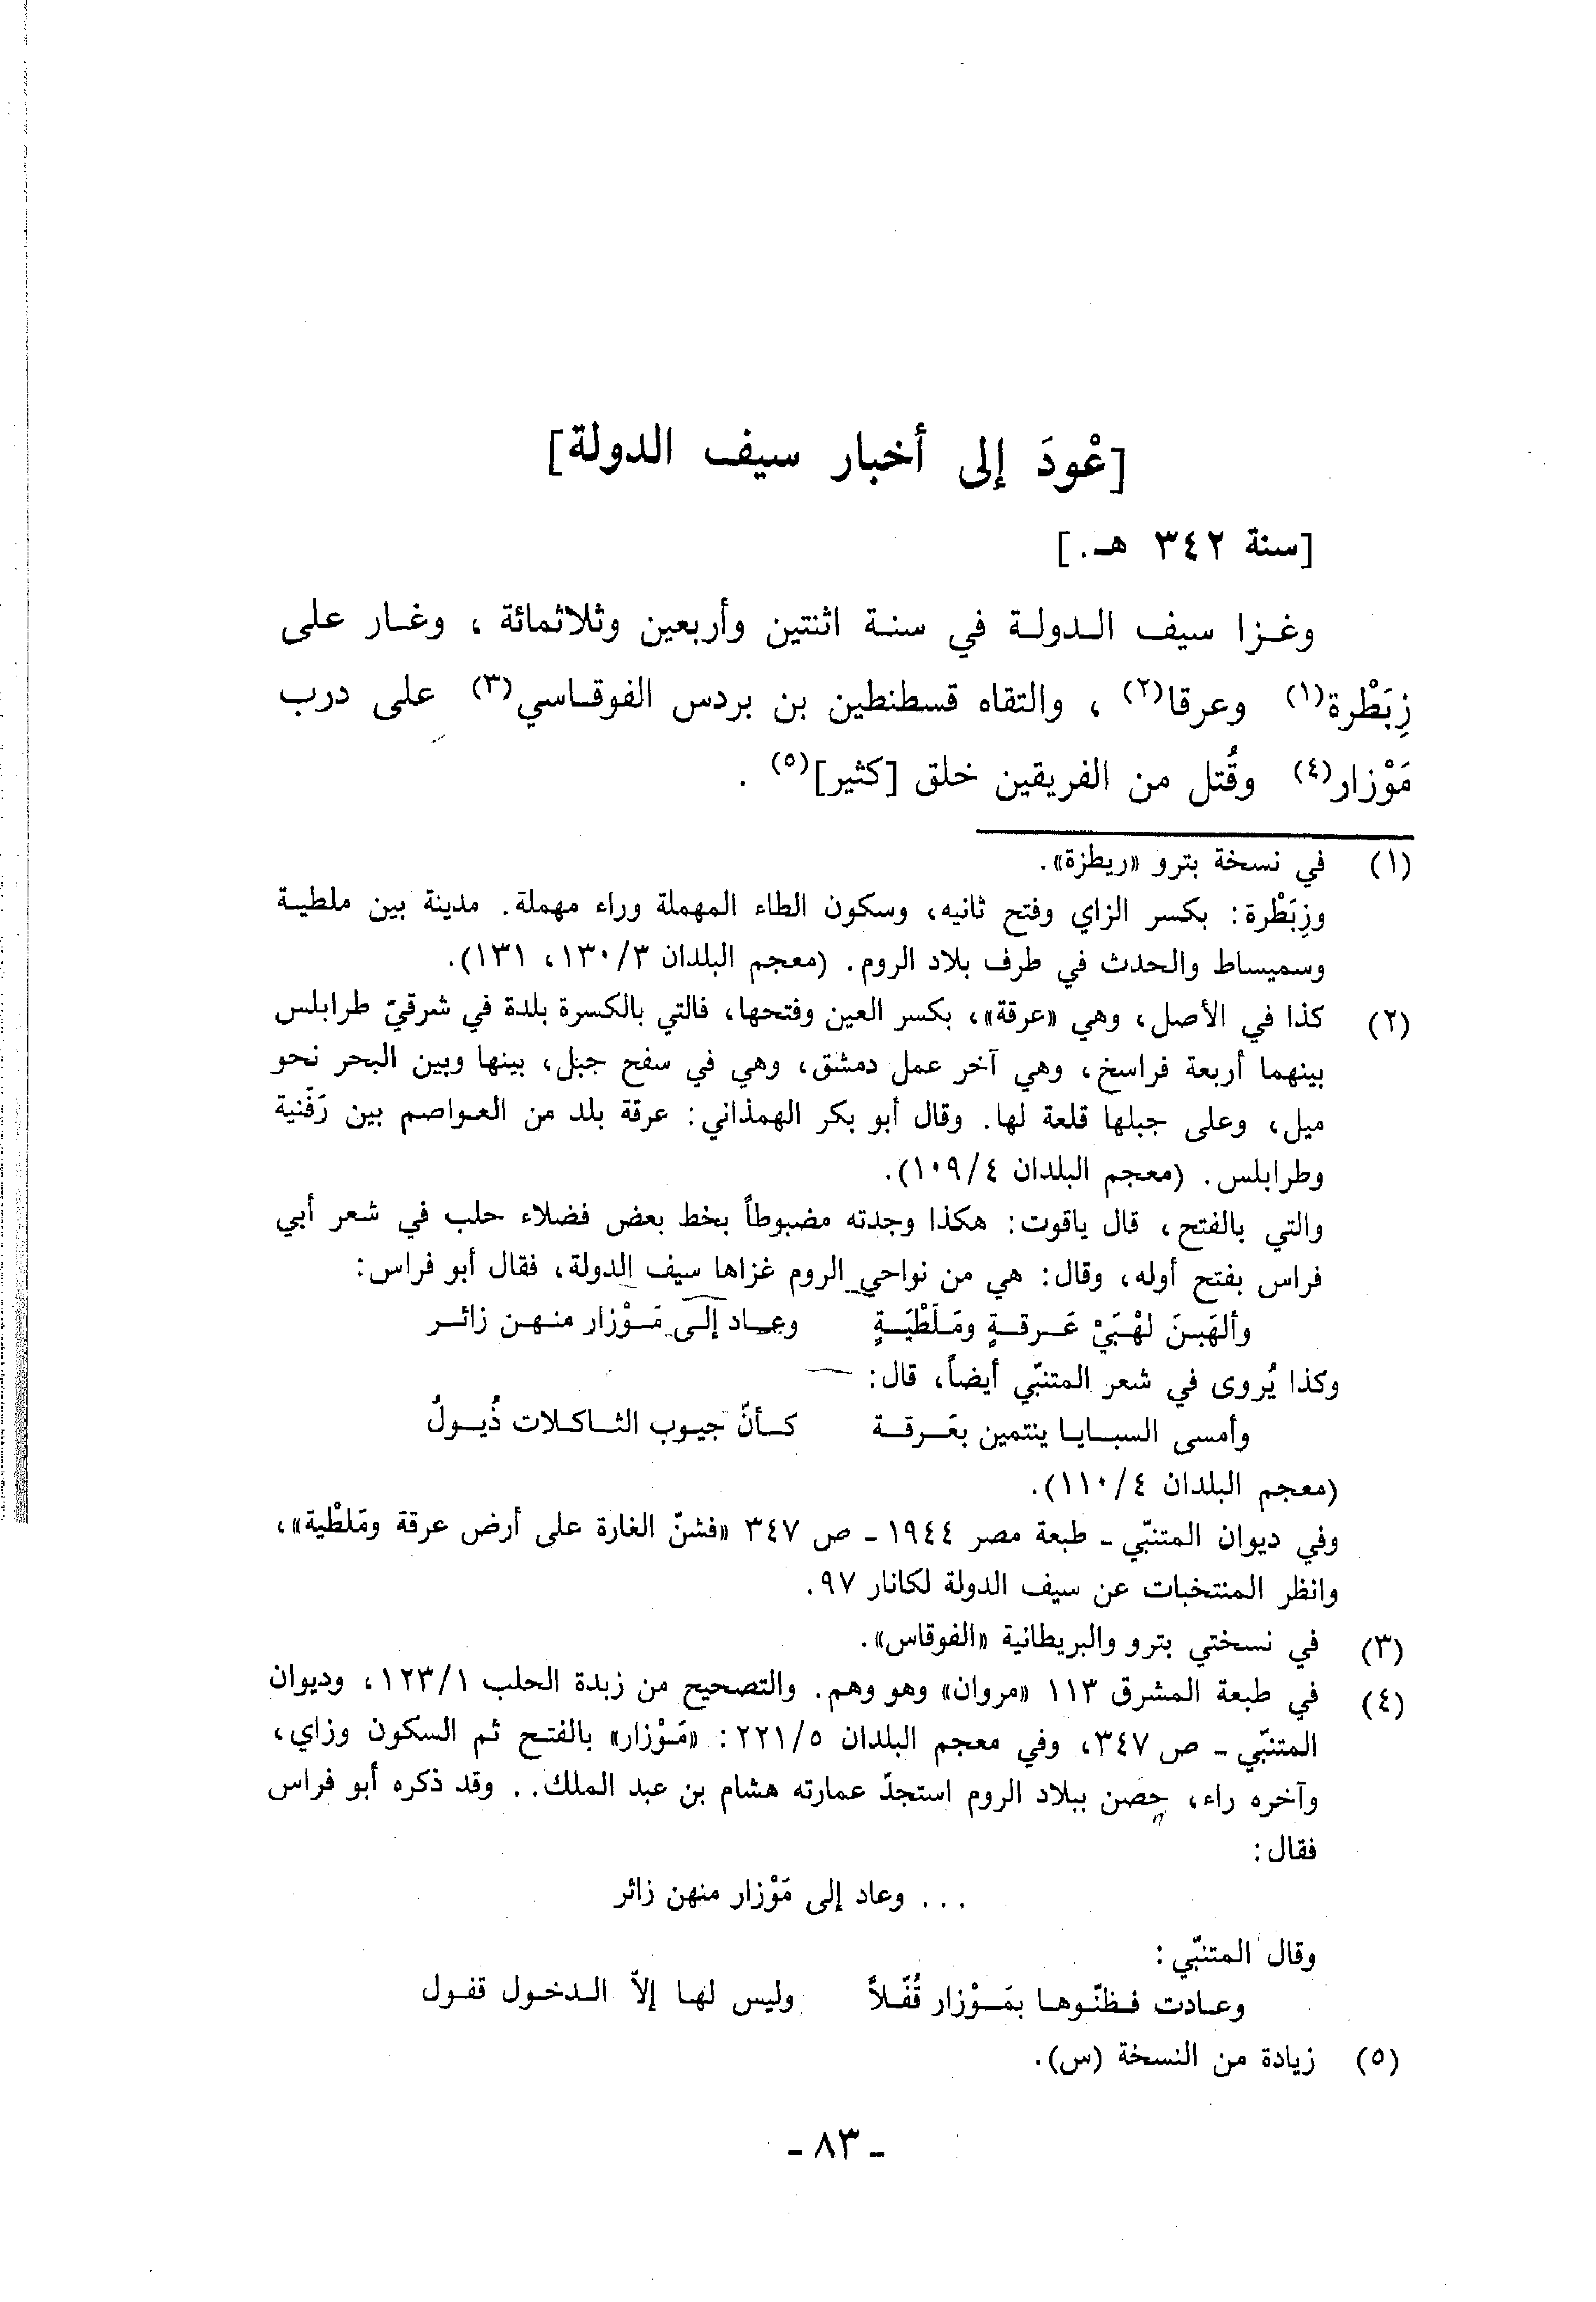 [عْودَ إلى أخبار سيف الدولة]
[سنة ٣٤٢ هـ.]
وغزا سيف الدولة في سنة اثنتين وأربعين وثلاثمائة ، وغار على
زِبَطْرة(١) وعرقا(٢) ، والتقاه قسطنطين بن بردس الفوقاسي(٣) على درب
مَوْزار(٤) وقُتل من الفريقين خلق [كثير](٥) .
(١) في نسخة بترو «ريطزة».
وزِبَطْرة: بكسر الزاي وفتح ثانيه، وسكون الطاء المهملة وراء مهملة. مدينة بين ملطية
وسميساط والحدث في طرف بلاد الروم. (معجم البلدان ١٣٠/٣، ١٣١).
(٢) كذا في الأصل، وهي «عرقة»، بكسر العين وفتحها، فالتي بالكسرة بلدة في شرقيّ طرابلس
بينهما أربعة فراسخ، وهي آخر عمل دمشق، وهي في سفح جبل، بينها وبين البحر نحو
ميل، وعلى جبلها قلعة لها. وقال أبو بكر الهمذاني: عرقة بلد من العواصم بين رَفَنية
وطرابلس. (معجم البلدان ١٠٩/٤).
والتي بالفتح، قال ياقوت: هكذا وجدته مضبوطاً بخط بعض فضلاء حلب في شعر أبي
فراس بفتح أوله، وقال: هي من نواحي الروم غزاها سيف الدولة، فقال أبو فراس:
وألهَبنَ لهْبَيْ عَرقةٍ ومَلَطْيَةٍ وعاد إلى مَوْزار منهن زائر
وكذا يُروى في شعر المتنبّي أيضاً، قال:
وأمسى السبايا ينتمين بعَرقة كأنّ جيوب الثاكلات ذُيولُ
(معجم البلدان ١١٠/٤).
وفي ديوان المتنبّي - طبعة مصر ١٩٤٤ - ص ٣٤٧ «فشنّ الغارة على أرض عرقة ومَلطْية»،
وانظر المنتخبات عن سيف الدولة لكانار ٩٧.
(٣) في نسختي بترو والبريطانية «الفوقاس».
(٤) في طبعة المشرق ١١٣ «مروان» وهو وهم. والتصحيح من زبدة الحلب ١٢٣/١، وديوان
المتنبّي - ص ٣٤٧، وفي معجم البلدان ٢٢١/٥: «مَوْزار» بالفتح ثم السكون وزاي،
وآخره راء، حصن ببلاد الروم استجدّ عمارته هشام بن عبد الملك.. وقد ذكره أبو فراس
فقال:
... وعاد إلى مَوْزار منهن زائر
وقال المتنبّي:
وعادت فظنّوها بمَوْزار قُفّلاً وليس لها إلاّ الدخول قفول
(٥) زيادة من النسخة (س).
- ٨٣ -